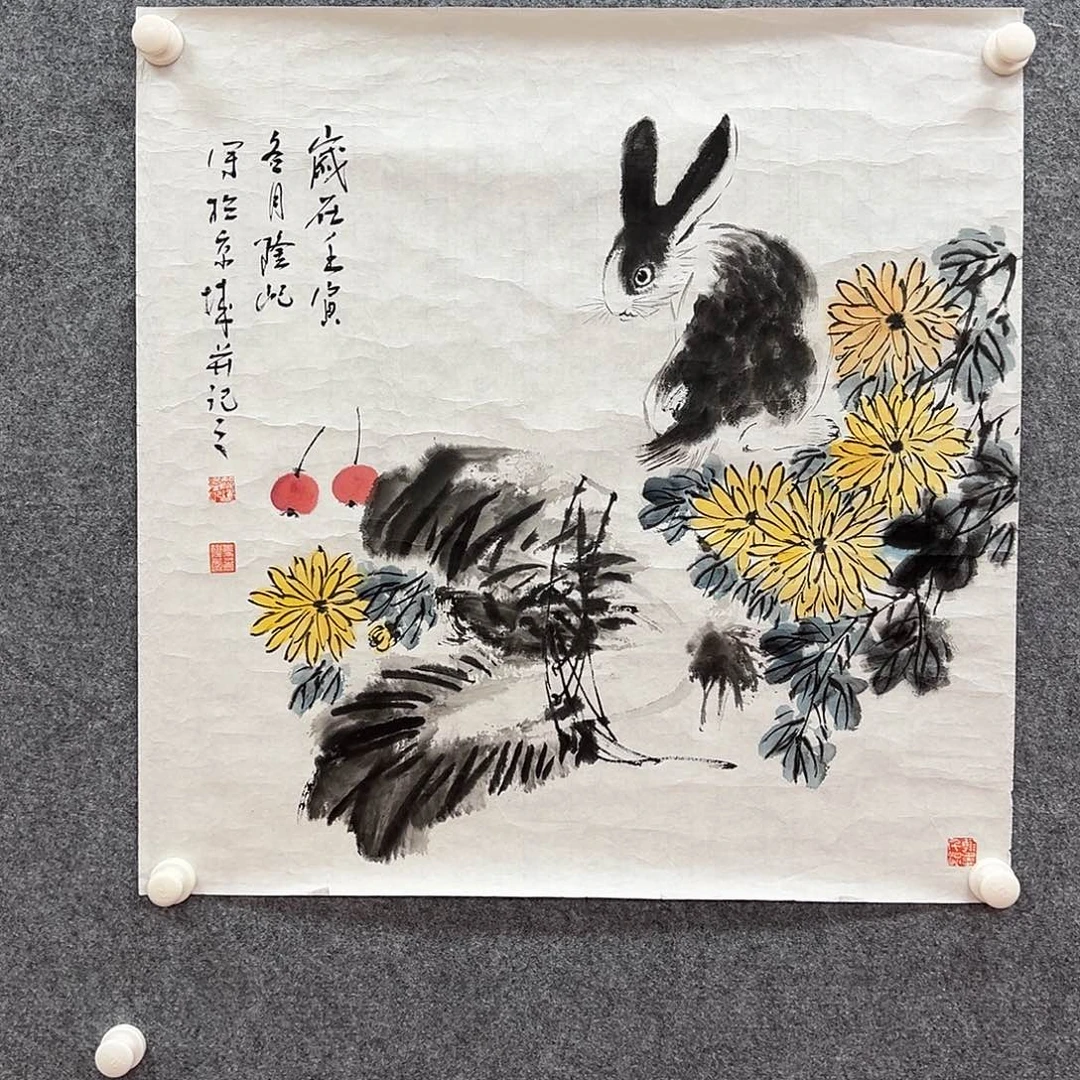 歲在壬寅
冬月陰屺
寫於京城并記之